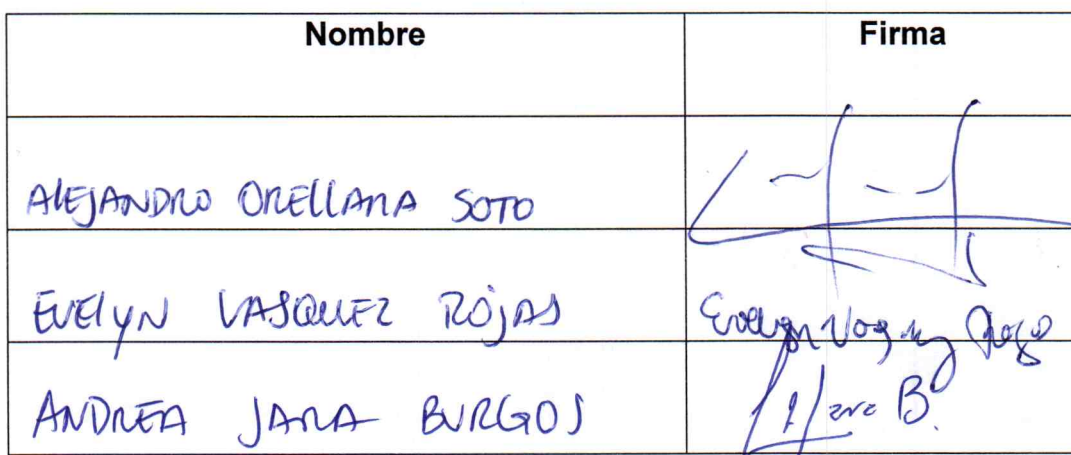 Nombre Firma
ALEJANDRO ORELLANA SOTO
EVELYN VASQUEZ ROJAS Evelyn Vasquez Rojas
ANDREA JARA BURGOS Jara B.